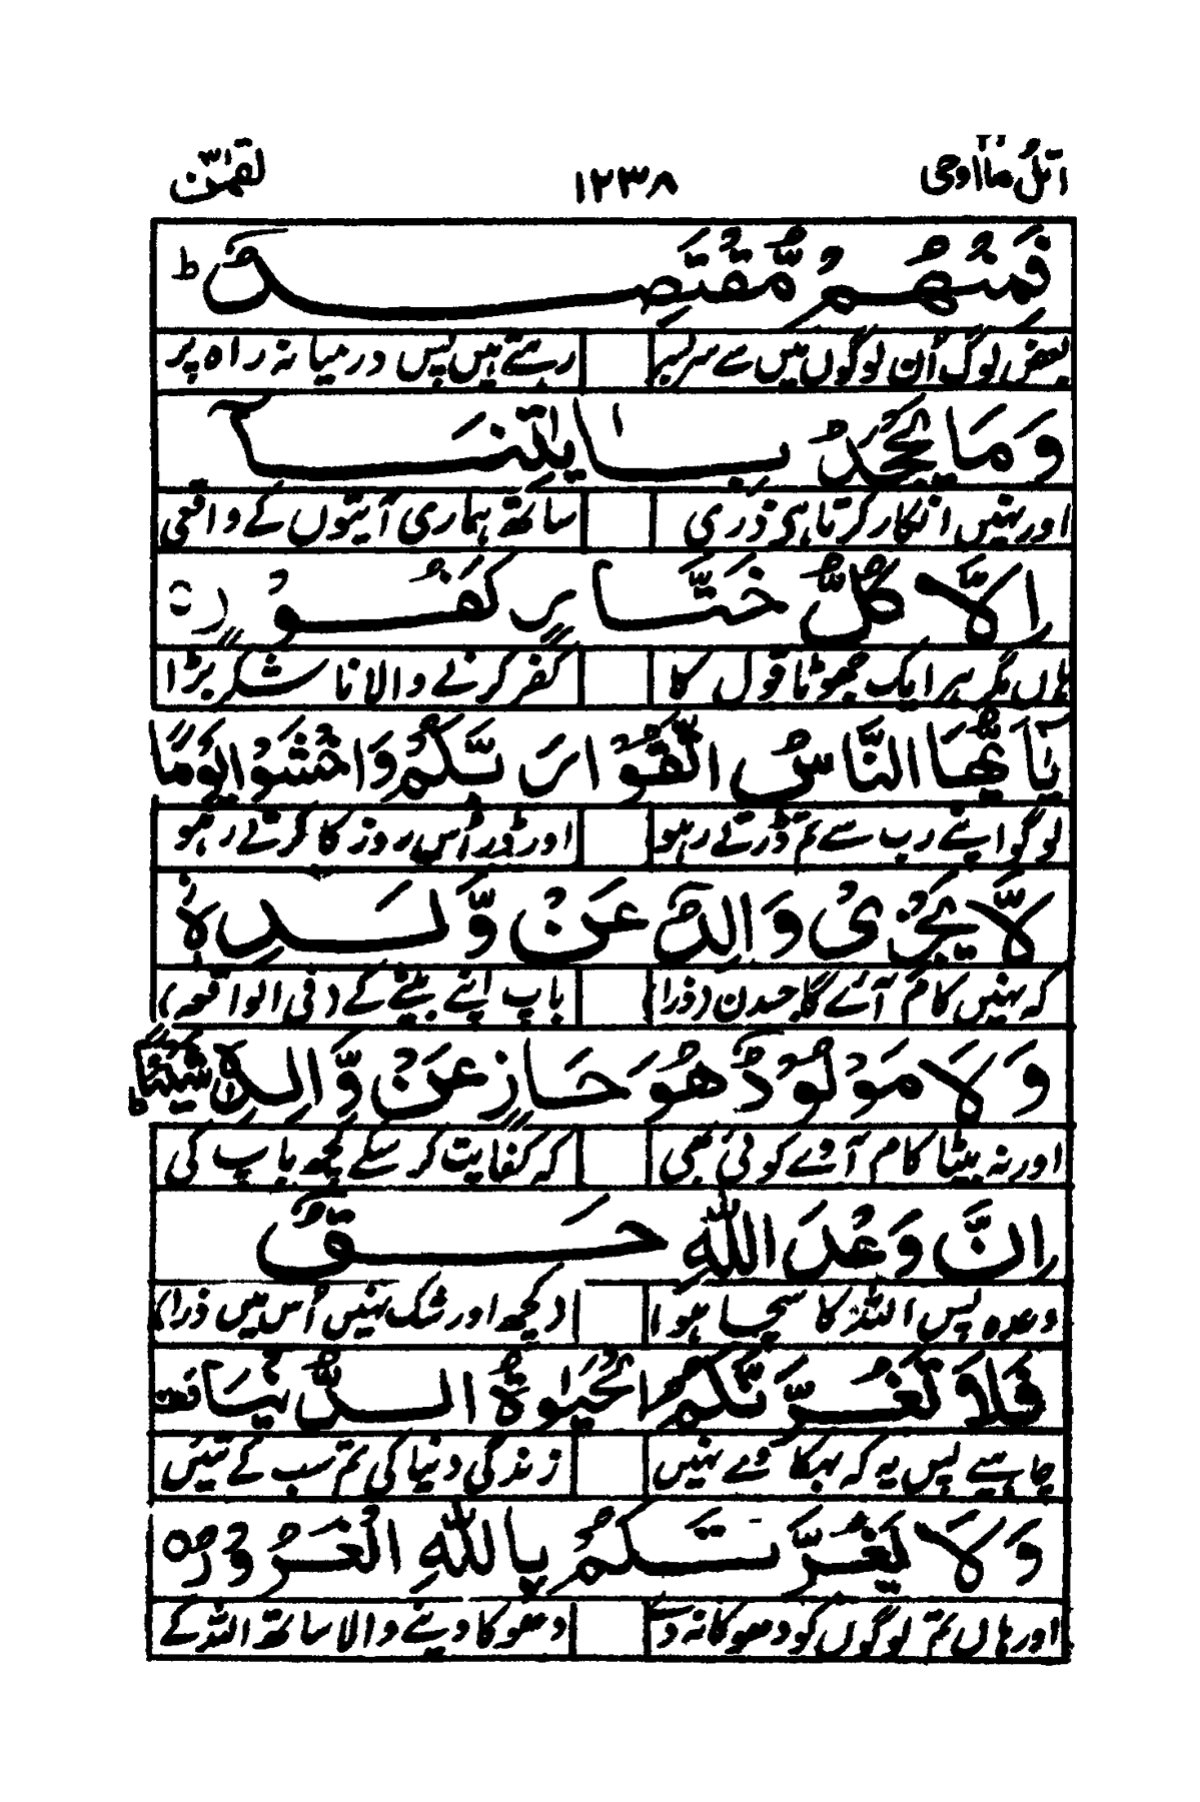 اتل ما اوحی ۲۱ ۱۲۳۸ لقمٰن
فَمِنْهُمْ مُّقْتَصِدٌ ؕ
بعض لوگ اُن لوگوں میں سے سربسر رہتے ہیں پس درمیانہ راہ پر
وَمَا يَجْحَدُ بِاٰيٰتِنَآ
اور نہیں انکار کرتا ہی ذری ساتھ ہماری آیتوں کے واقعی
اِلَّا كُلُّ خَتَّارٍ كَفُوْرٍ ۝
ہاں مگر ہر ایک جھوٹا قول کا کفر کرنے والا نا شکر بڑا
يٰٓاَيُّهَا النَّاسُ اتَّقُوْا رَبَّكُمْ وَاخْشَوْا يَوْمًا
لوگو اپنے رب سے تم ڈرتے رہو اور ڈر اُس روز کا کرتے رہو
لَّا يَجْزِيْ وَالِدٌ عَنْ وَّلَدِهٖ
کہ نہیں کام آئے گا جسدن (ذرا) باپ اپنے بیٹے کے (فی الواقعہ)
وَلَا مَوْلُوْدٌ هُوَ جَازٍ عَنْ وَّالِدِهٖ شَيْـًٔا ؕ
اور نہ بیٹا کام آوے کوئی بھی کہ کفایت کر سکے کچھ باپ کی
اِنَّ وَعْدَ اللّٰهِ حَقٌّ
وعدہ پس اللہ کا سچا ہو ا دیکھ اور شک نہیں اُس میں ذرا
فَلَا تَغُرَّنَّكُمُ الْحَيٰوةُ الدُّنْيَا
چاہیے پس یہ کہ بہکا دے نہیں زندگی دنیا کی تم سب کے تئیں
وَلَا يَغُرَّنَّكُمْ بِاللّٰهِ الْغَرُوْرُ ۝
اور ہاں تم لوگوں کو دھوکا نہ دے دھوکا دینے والا ساتھ اللہ کے